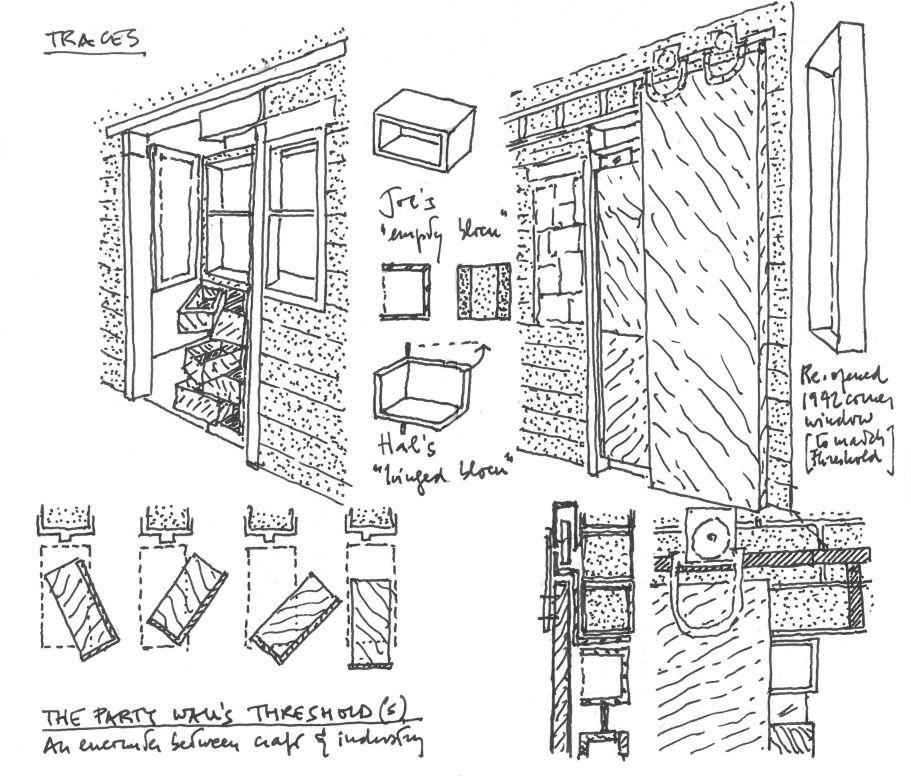 TRACES
Joe's
"empty block"
Hal's
"hinged block"
Re-opened
1992 corner
window
[to match]
threshold
THE PARTY WALL'S THRESHOLD(S)
An encounter between craft & industry